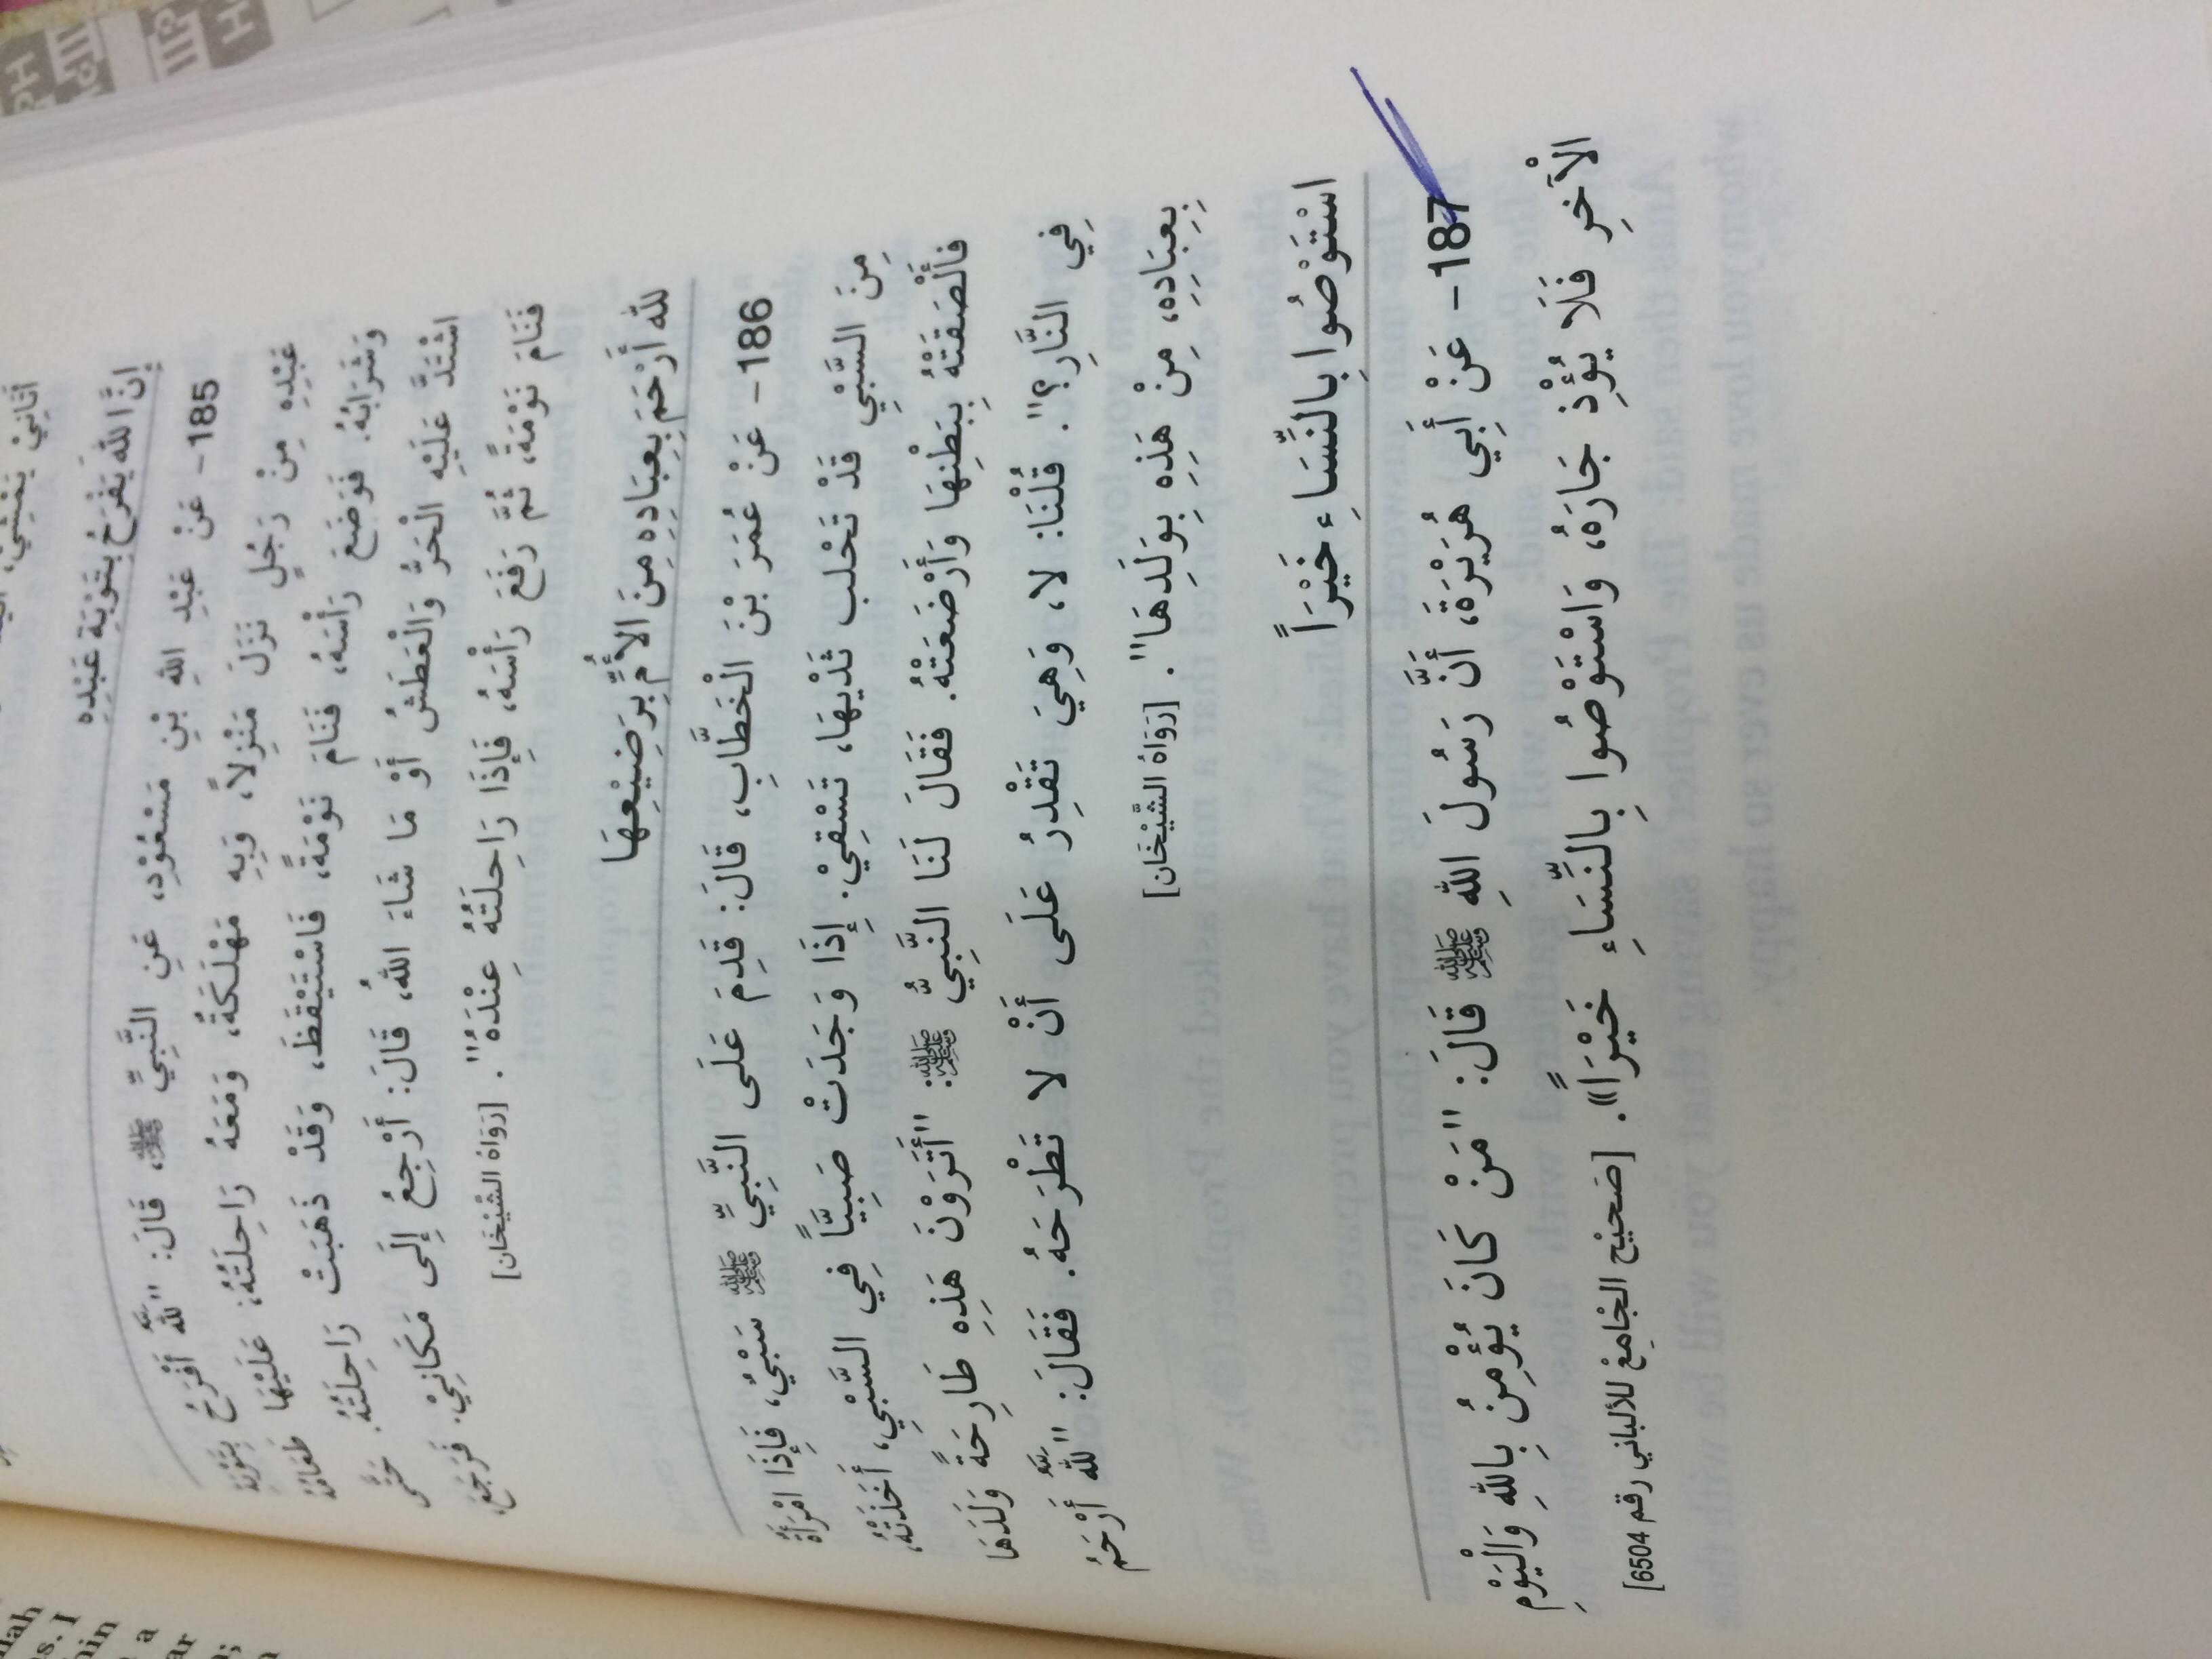 أَتَانِيْ يَمْشِيْ،
إِنَّ اللهَ يَفْرَحُ بِتَوْبَةِ عَبْدِهِ
185- عَنْ عَبْدِ اللهِ بْنِ مَسْعُوْدٍ، عَنِ النَّبِيِّ ﷺ، قَالَ: "للهُ أَفْرَحُ بِتَوْبَةِ
عَبْدِهِ مِنْ رَجُلٍ نَزَلَ مَنْزِلاً، وَبِهِ مَهْلَكَةٌ، وَمَعَهُ رَاحِلَتُهُ، عَلَيْهَا طَعَامُهُ
وَشَرَابُهُ. فَوَضَعَ رَأْسَهُ، فَنَامَ نَوْمَةً، فَاسْتَيْقَظَ، وَقَدْ ذَهَبَتْ رَاحِلَتُهُ. حَتَّى
اشْتَدَّ عَلَيْهِ الْحَرُّ وَالْعَطَشُ أَوْ مَا شَاءَ اللهُ، قَالَ: أَرْجِعُ إِلَى مَكَانِيْ. فَرَجَعَ،
فَنَامَ نَوْمَةً، ثُمَّ رَفَعَ رَأْسَهُ، فَإِذَا رَاحِلَتُهُ عِنْدَهُ". [رَوَاهُ الشَّيْخَان]
للهُ أَرْحَمُ بِعِبَادِهِ مِنَ الأُمِّ بِرَضِيْعِهَا
186- عَنْ عُمَرَ بْنَ الْخَطَّابِ، قَالَ: قَدِمَ عَلَى النَّبِيِّ ﷺ سَبْيٌ، فَإِذَا امْرَأَةٌ
مِنَ السَّبْيِ قَدْ تَحْلب ثَدْيهَا، تَسْقِيْ. إِذَا وَجَدَتْ صَبِيَّاً فِي السَّبْيِ، أَخَذَتْهُ،
فَأَلْصَقَتْهُ بِبَطْنِهَا وَأَرْضَعَتْهُ. فَقَالَ لَنَا النَّبِيُّ ﷺ: "أَتَرَوْنَ هَذِهِ طَارِحَةً وَلَدَهَا
فِي النَّارِ؟". قُلْنَا: لا، وَهِيَ تَقْدِرُ عَلَى أَنْ لا تَطْرَحَهُ. فَقَالَ: "للهُ أَرْحَمُ
بِعِبَادِهِ، مِنْ هَذِهِ بِوَلَدِهَا". [رَوَاهُ الشَّيْخَان]
اسْتَوْصُوا بِالنِّسَاءِ خَيْرَاً
187- عَنْ أَبِي هُرَيْرَةَ، أَنَّ رَسُولَ اللهِ ﷺ قَالَ: "مَنْ كَانَ يُؤْمِنُ بِاللهِ وَالْيَوْمِ
الْآخِرِ فَلَا يُؤْذِ جَارَهُ، وَاسْتَوْصُوا بِالنِّسَاءِ خَيْرَاً». [صَحيْح الجْامِعْ للألباني رقم 6504]